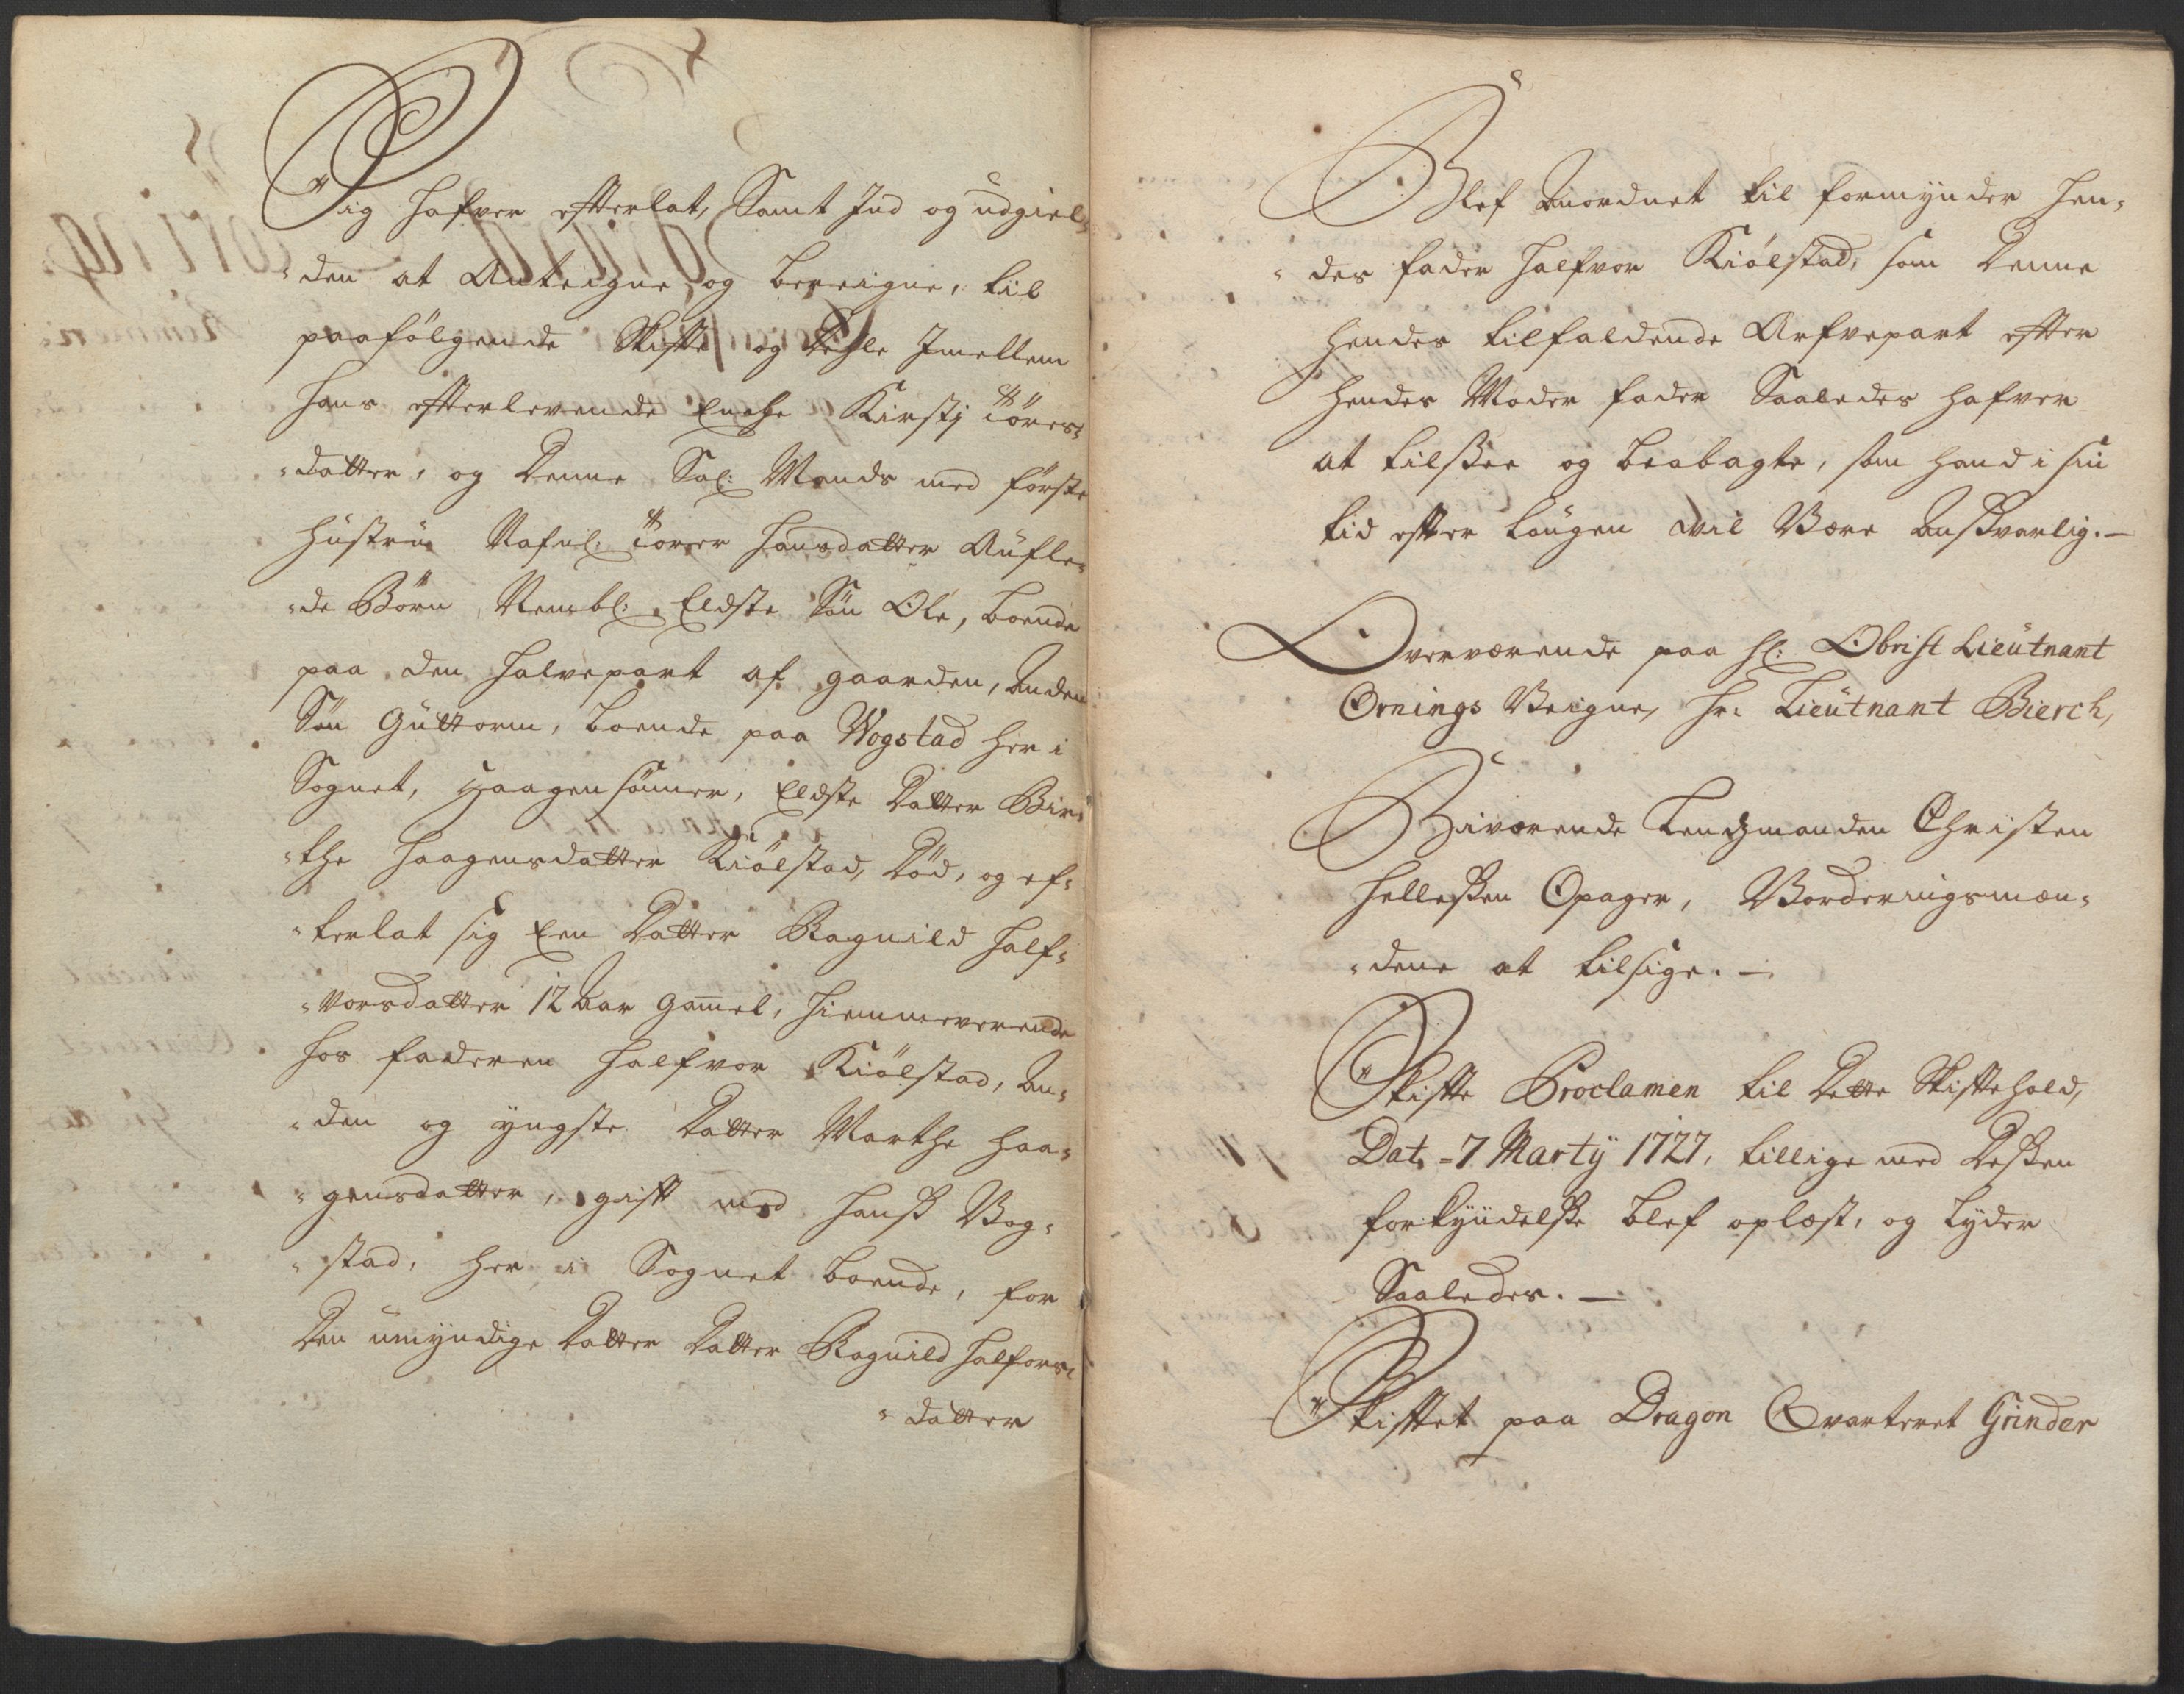 Sig hafver efterlat, Samt Ind og udgiel„
„den at Anteigne, og bereigne, til
paafölgende Skifte og Dehle Imellem
hans efterlevende Enche Kirstj Töres„
„datter, og Denne Sal: Mands med förste
Hüstrüe Nafnl: Torer Hansdatter Aufle„
„de Börn, Nembl: Eldste Sön Ole, boende
paa den halvepart af gaarden, Anden
Sön Güttorm, boende paa Wogstad her i
Sognet, Haagensönner, Eldste Datter Bir„
„the Haagensdatter Kiölstad, Död, og ef„
„terlat sig Een Datter Ragnild Half„
„vorsdatter 12 Aar gamel, hiemmeverende
hos faderen Halfvor Kiölstad, An„
„den og yngste Datter Marthe Haa„
„gensdatter, gift med Hans Wog„
„stad, her i Sognet boende, for
Den umyndige Datter Datter Ragnild Halfors„
„datter
Blef Anordnet til formynder hen„
„des fader Halfvor Kiölstad, som Denne
hendes tilfaldende Arfvepart efter
hendes Moder fader Saaledes hafver
at tilsee og beobagte, som hand i sin
tid efter Laugen vil Være Ansvarlig. —
Overværende paa Hl: Obrist Lieütnant
Örnings Veigne, Hr: Lieütnant Bierch,
Biværende Lendzmanden Christen
Hellesen Opager, Vorderingsmæn„
„dene at tilsige. —
Skifte Proclamen til Dette Skiftehold,
Dat. 7 Martij 1727, tillige med Desken
forkyndelse blef oplæst, og lyder
Saaledes. —
Skiftet paa Dragon Qvarteret Grinder